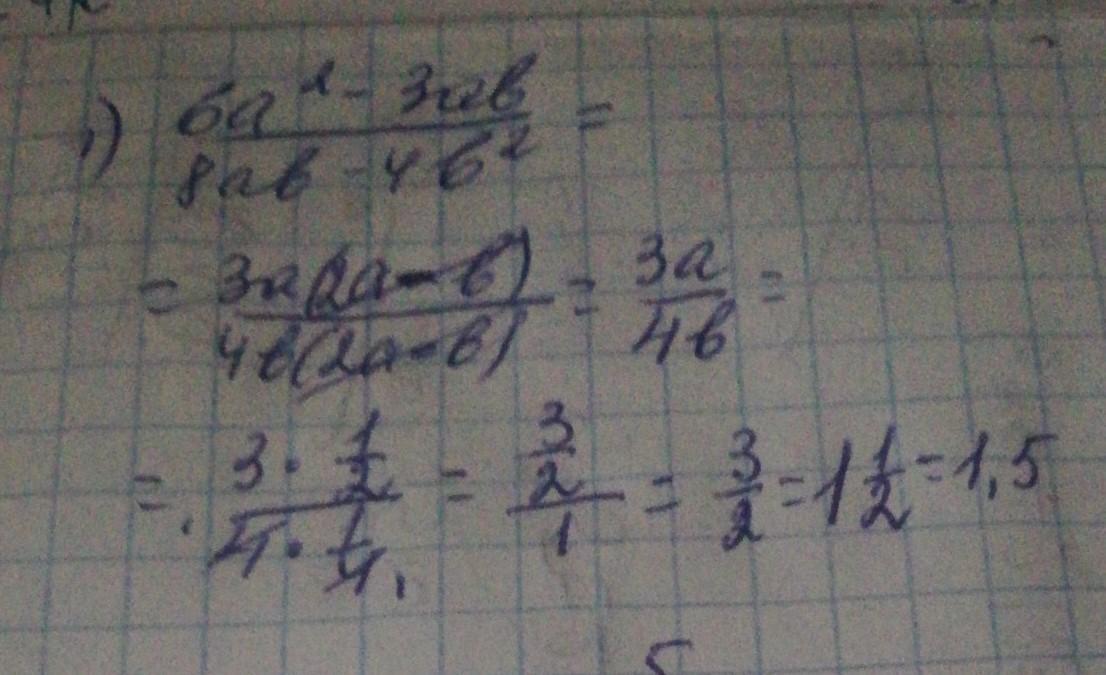 1) (6a² - 3ab)/(8ab - 4b²) =
= 3a(2a - b)/4b(2a - b) = 3a/4b =
= (3 · 1/2)/(4 · 1/4) = (3/2)/1 = 3/2 = 1 1/2 = 1,5